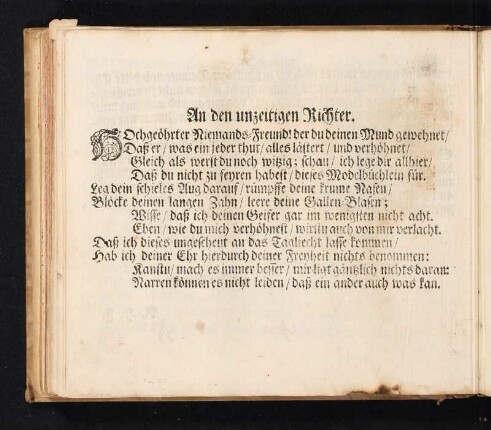 An den unzeitigen Richter.
HOchgeöhrter Niemands-Freund! der du deinen Mund gewehnet/
Daß er/ was ein jeder thut/ alles lästert/ und verhöhnet/
Gleich als werst du noch witzig; schau/ ich lege dir allhier/
Daß du nicht zu feyren habest/ dieses Modelbüchlein für.
Leg dein schieles Aug darauf/ rümpffe deine krume Nasen/
Blöcke deinen langen Zahn/ leere deine Gallen-Blasen;
Wisse/ daß ich deinen Geifer gar im wenigsten nicht acht.
Eben/ wie du mich verhöhnest/ wirstu auch von mir verlacht.
Daß ich dieses ungescheut an das Tagliecht lasse kommen/
Hab ich deiner Ehr hierdurch deiner Freyheit nichts benommen:
Kanstu/ mach es immer besser/ mir ligt gäntzlich nichts daran:
Narren können es nicht leiden/ daß ein ander auch was kan.